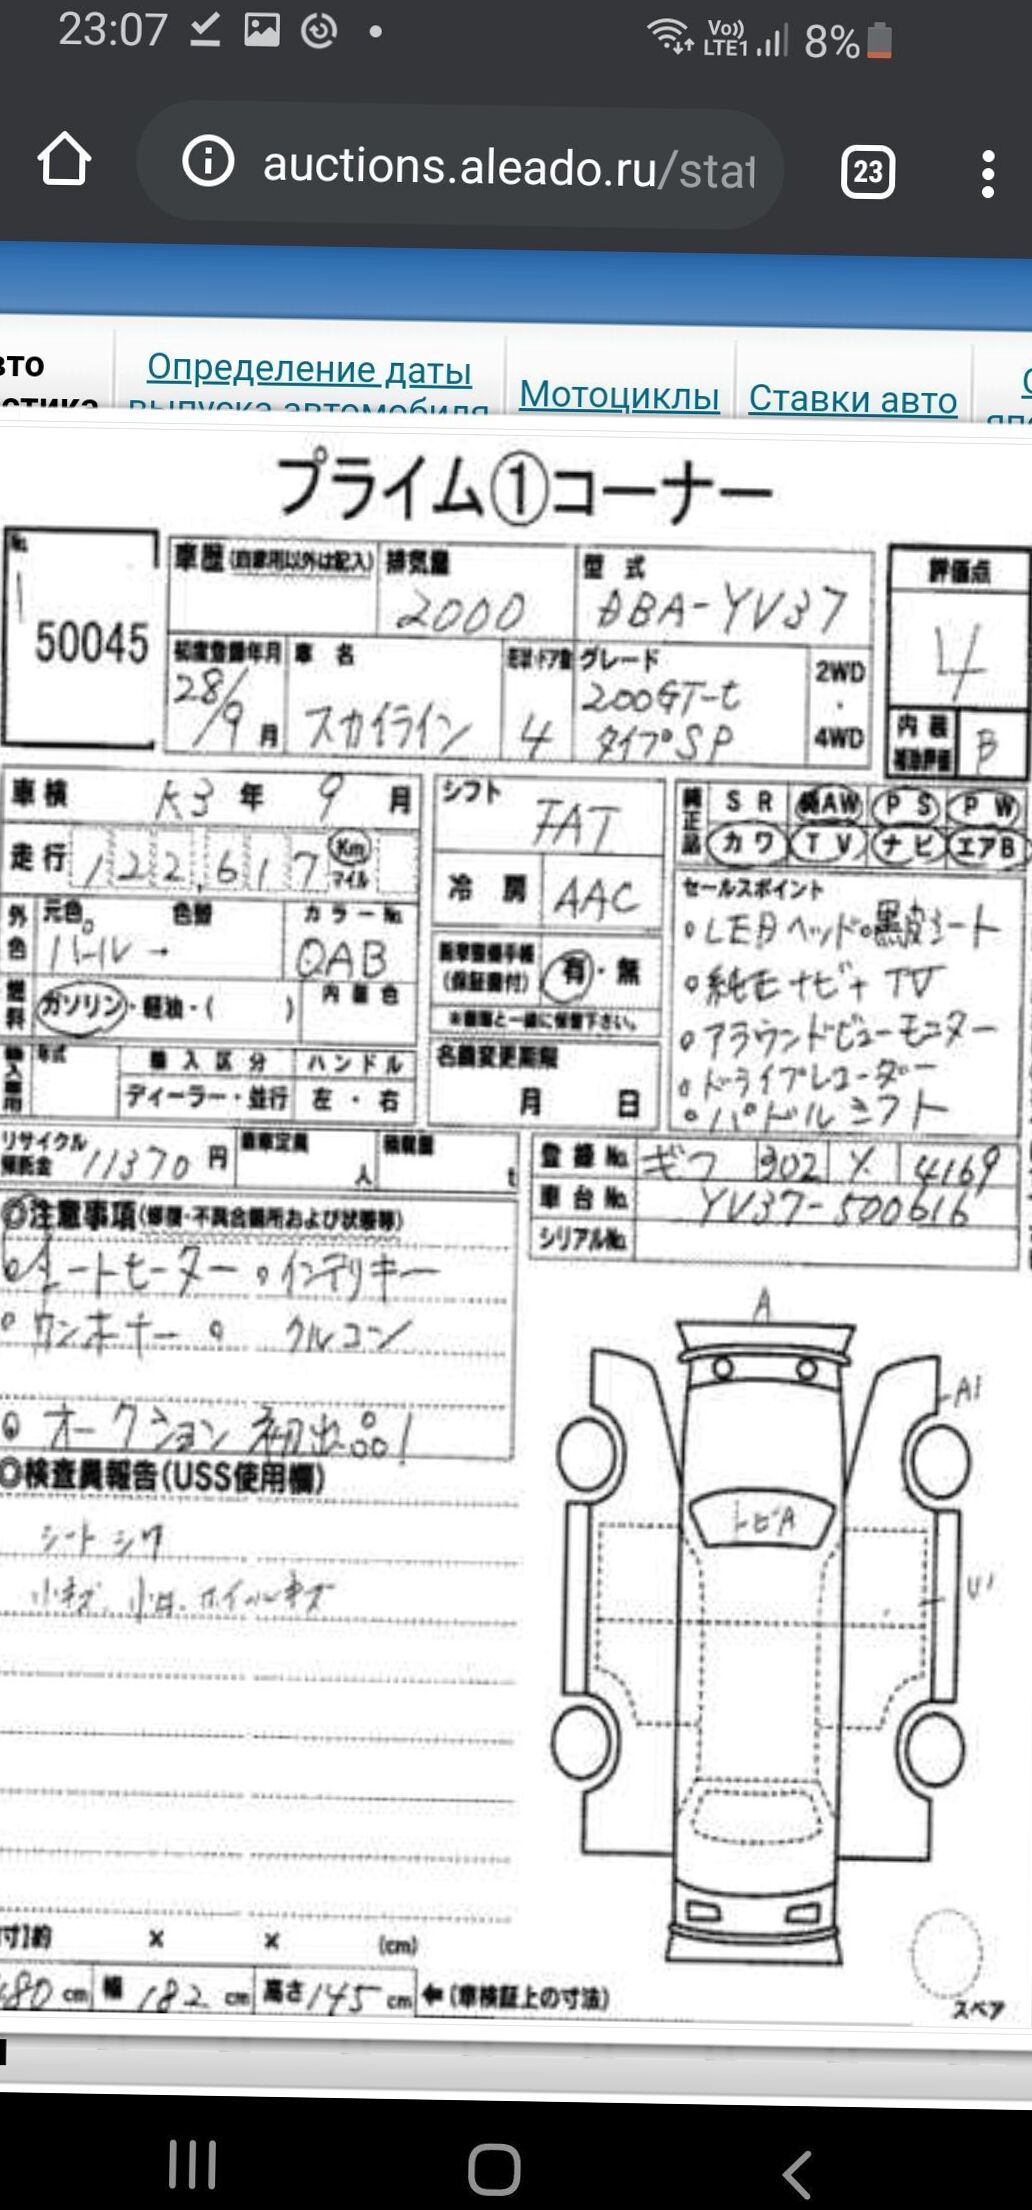 23:07
Vo))
LTE1
8%
auctions.aleado.ru/stat
23
Определение даты
выпуска автомобиля
Мотоциклы
Ставки авто
プライム①コーナー
No.
50045
車歴(自家用以外は記入)
排気量
2000
型式
DBA-YV37
評価点
4
初度登録年月
28/9月
車名
スカイライン
形状・ドア数
4
グレード
200GT-t
タイプSP
2WD
・
4WD
内装
補助評価
B
車検 R3年 9月
走行 122,617 Km
マイル
シフト
FAT
冷房 AAC
純正品
SR AW PS PW
カワ TV ナビ エアB
外色
元色
色替
カラーNo.
パール→
QAB
燃料
ガソリン・軽油・( )
内装色
新車整備手帳
(保証書付)
有・無
※書類と一緒に保管下さい。
セールスポイント
LEDヘッド 黒皮シート
純正ナビ+TV
アラウンドビューモニター
ドライブレコーダー
パドルシフト
年式
輸入区分
ハンドル
ディーラー・並行
左・右
名義変更期限
月 日
リサイクル
預託金
11370円
乗車定員
人
積載量
t
登録No.
ギフ 302 4169
車台No.
YV37-500616
シリアルNo.
◎注意事項(修復・不具合箇所および状態等)
シートモーター インテリキー
ワンオーナー クルコン
オークション初出品!
◎検査員報告(USS使用欄)
シートシワ
小キズ、小凹、ホイールキズ
A
A1
トビA
U1
寸]約 × × (cm)
480cm 幅 182cm 高さ145cm ←(車検証上の寸法)
スペア